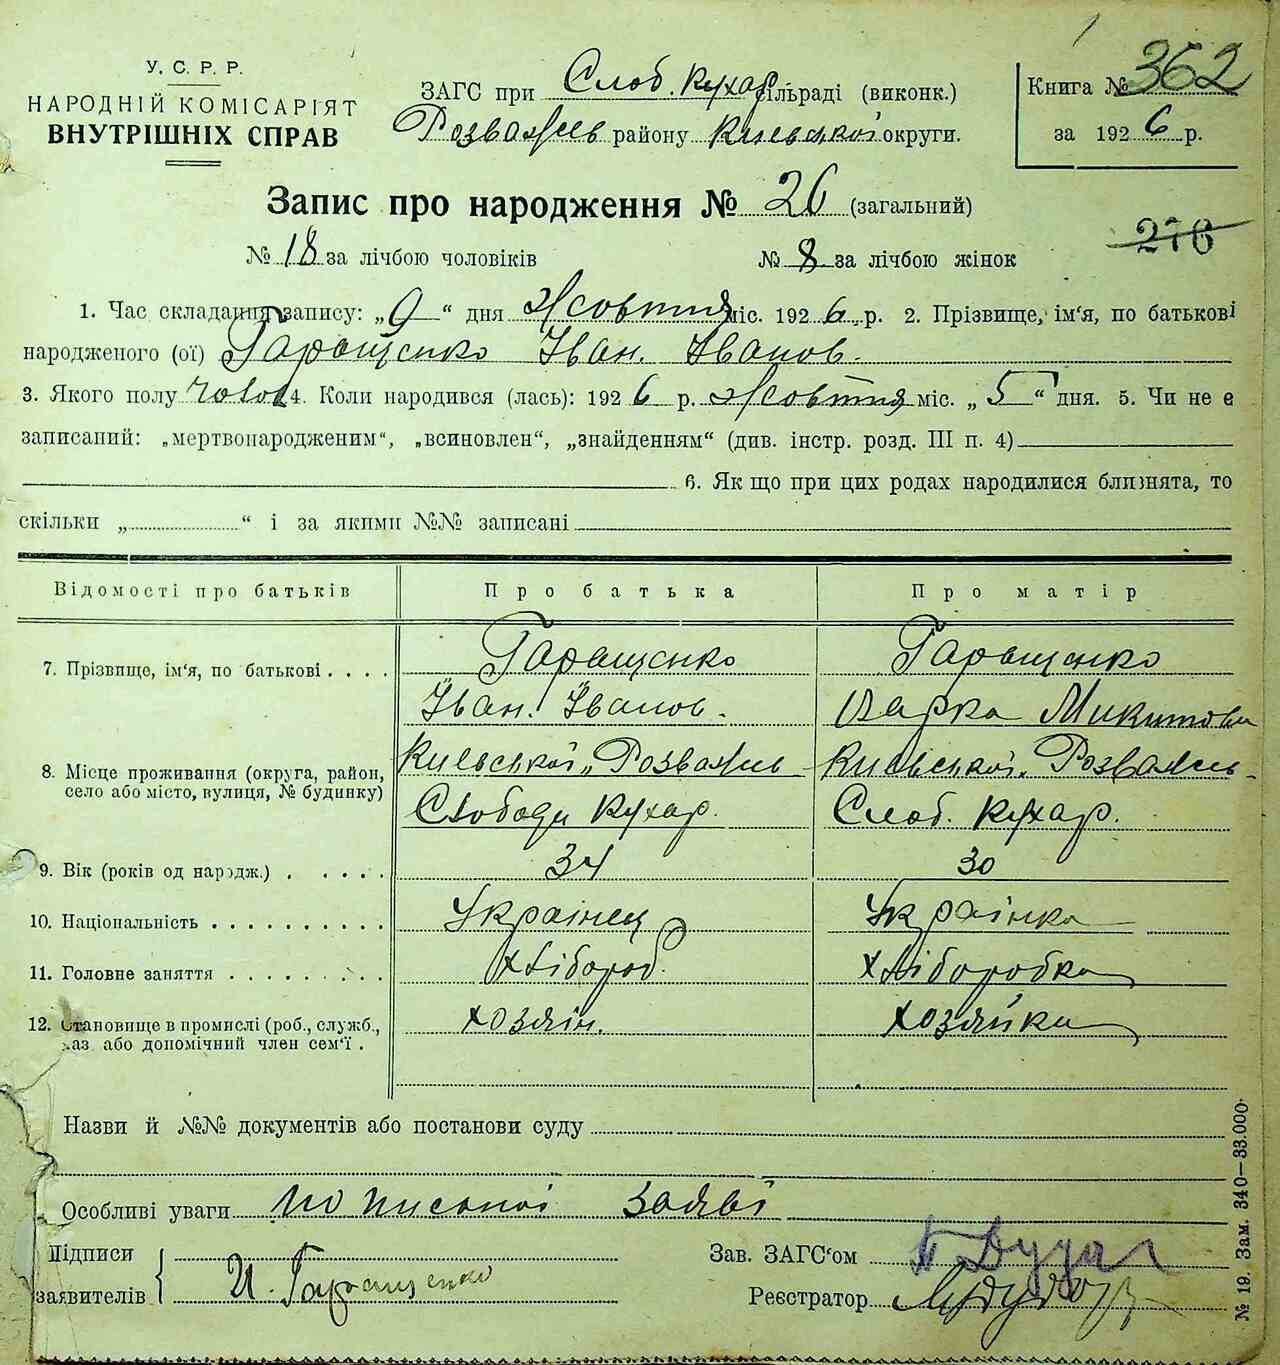 У. С. Р. Р.
НАРОДНІЙ КОМІСАРІЯТ
ВНУТРІШНІХ СПРАВ
ЗАГС при Слоб. Кухар. сільраді (виконк.)
Розважев району Київської округи.
Книга № 362
за 1926 р.
Запис про народження № 26 (загальний)
276
№ 18 за лічбою чоловіків № 8 за лічбою жінок
1. Час складання запису: „9“ дня Жовтня міс. 1926 р. 2. Прізвище, ім‘я, по батькові
народженого (ої) Гаращенко Іван. Іванов.
3. Якого полу чолов 4. Коли народився (лась): 1926 р. Жовтня міс. „5“ дня. 5. Чи не є
записаний: „мертвонародженим“, „всиновлен“, „знайденням“ (див. інстр. розд. III п. 4)
6. Як що при цих родах народилися близнята, то
скільки „ “ і за якими №№ записані
Відомості про батьків Про батька Про матір
7. Прізвище, ім‘я, по батькові . . . . Гаращенко Гаращенко
Іван. Іванов. Микитовн
8. Місце проживання (округа, район, Київської, Розважев Київської. Розважев
село або місто, вулиця, № будинку) Слободи Кухар. Слоб. Кухар.
9. Вік (років од народж.) . . . . . 34 30
10. Національність . . . . . . . . . . Українец Українка
11. Головне заняття . . . . . . . . Хлібороб. Хліборобка
12. Становище в промислі (роб., служб., хозяін. хозяйка
хаз або допомічний член сем‘ї .
Назви й №№ документів або постанови суду
Особливі уваги по писаної заяві
Підписи
заявителів И. Гаращенко
Зав. ЗАГС‘ом Дуда
Реєстратор
№ 19. Зам. 340—33.000.